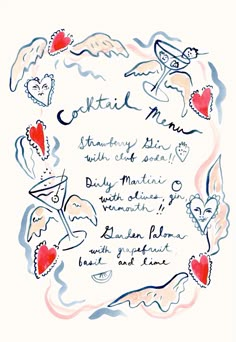 Cocktail Menu
Strawberry Gin
with club soda!!
Dirty Martini
with olives, gin
vermouth !!
Garden Paloma
with grapefruit
basil and lime